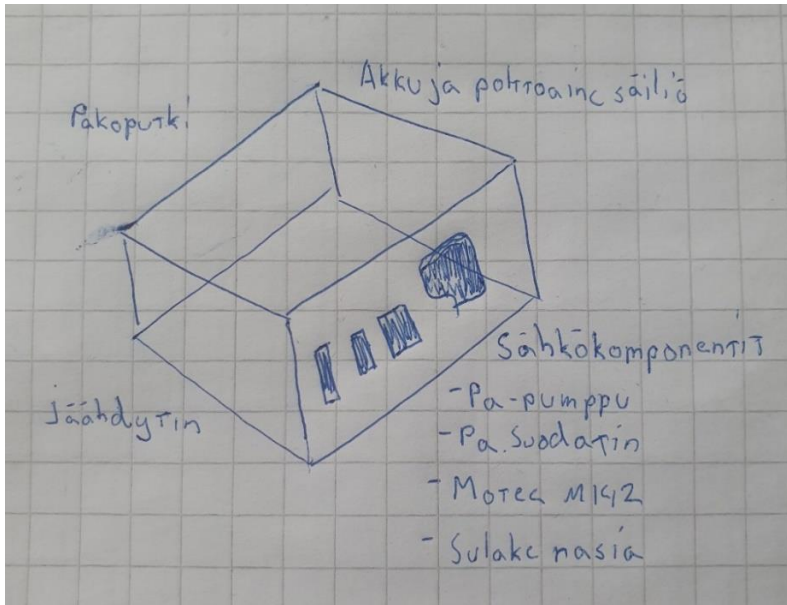 Akku ja polttoaine säiliö
Pakoputki
Sähkökomponentit
Jäähdytin
-Pa-pumppu
-Pa.Suodatin
- Motec M142
- Sulake rasia